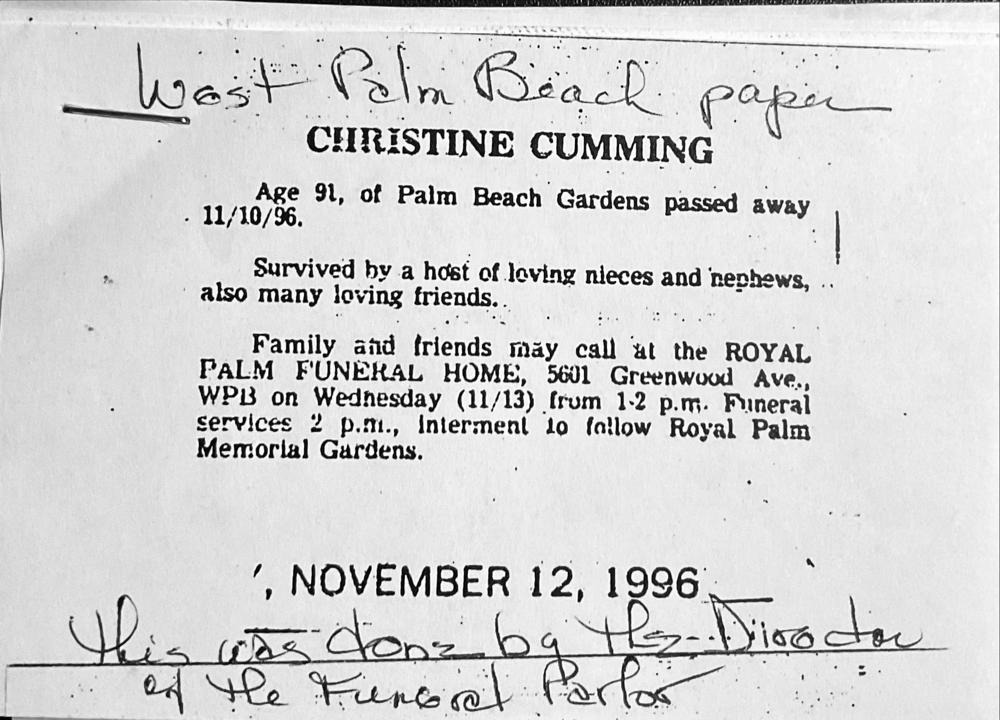 West Palm Beach paper
CHRISTINE CUMMING
Age 91, of Palm Beach Gardens passed away
11/10/96.
Survived by a host of loving nieces and nephews,
also many loving friends.
Family and friends may call at the ROYAL
PALM FUNERAL HOME, 5601 Greenwood Ave.,
WPB on Wednesday (11/13) from 1-2 p.m. Funeral
services 2 p.m., Interment to follow Royal Palm
Memorial Gardens.
, NOVEMBER 12, 1996
this was done by the Director
of the Funeral Parlor